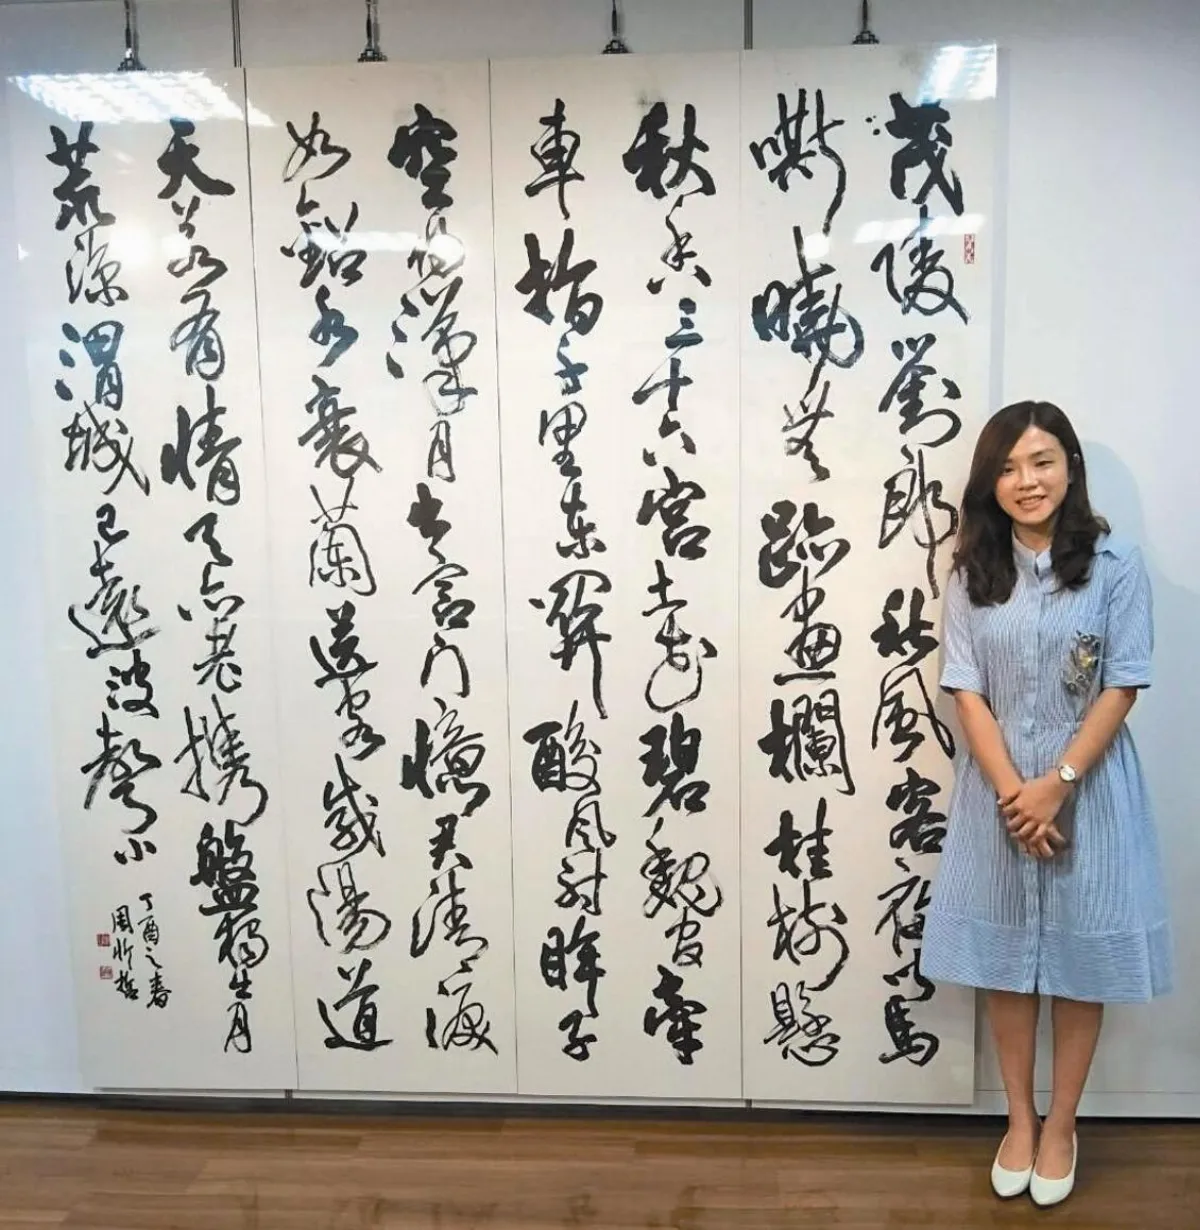 茂陵劉郎秋風客夜聞馬
嘶曉無跡畫欄桂樹懸
秋香三十六宮土花碧魏官牽
車指千里東關酸風射眸子
空將漢月出宮門憶君清淚
如鉛水衰蘭送客咸陽道
天若有情天亦老攜盤獨出月
荒涼渭城已遠波聲小
丁酉之春
周忻哲